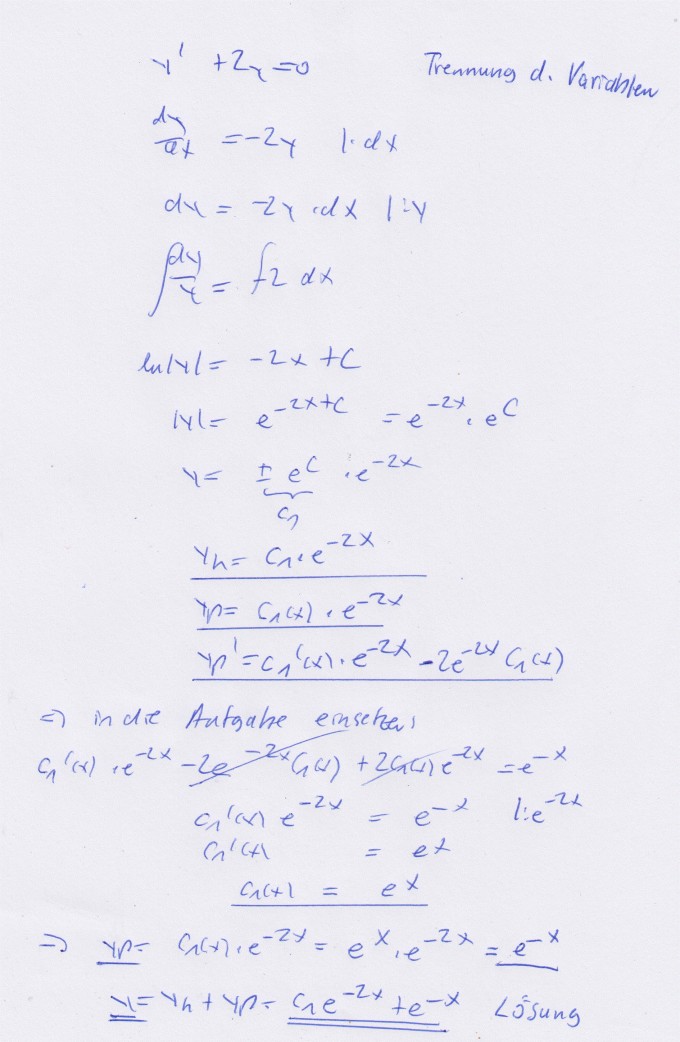 y' + 2y = 0 Trennung d. Variablen
dy/dx = -2y |· dx
dy = -2y · dx | : y
∫ dy/y = ∫-2 dx
ln|y| = -2x + C
|y| = e^(-2x+C) = e^(-2x) · e^C
y = ± e^C · e^(-2x)
C₁
yh = C₁ · e^(-2x)
yp = C₁(x) · e^(-2x)
yp' = C₁'(x) · e^(-2x) - 2e^(-2x) C₁(x)
⇒ in die Aufgabe einsetzen
C₁'(x) · e^(-2x) - 2e^(-2x) C₁(x) + 2C₁(x) e^(-2x) = e^(-x)
C₁'(x) e^(-2x) = e^(-x) | : e^(-2x)
C₁'(x) = e^x
C₁(x) = e^x
⇒ yp = C₁(x) · e^(-2x) = e^x · e^(-2x) = e^(-x)
y = yh + yp = C₁e^(-2x) + e^(-x) Lösung